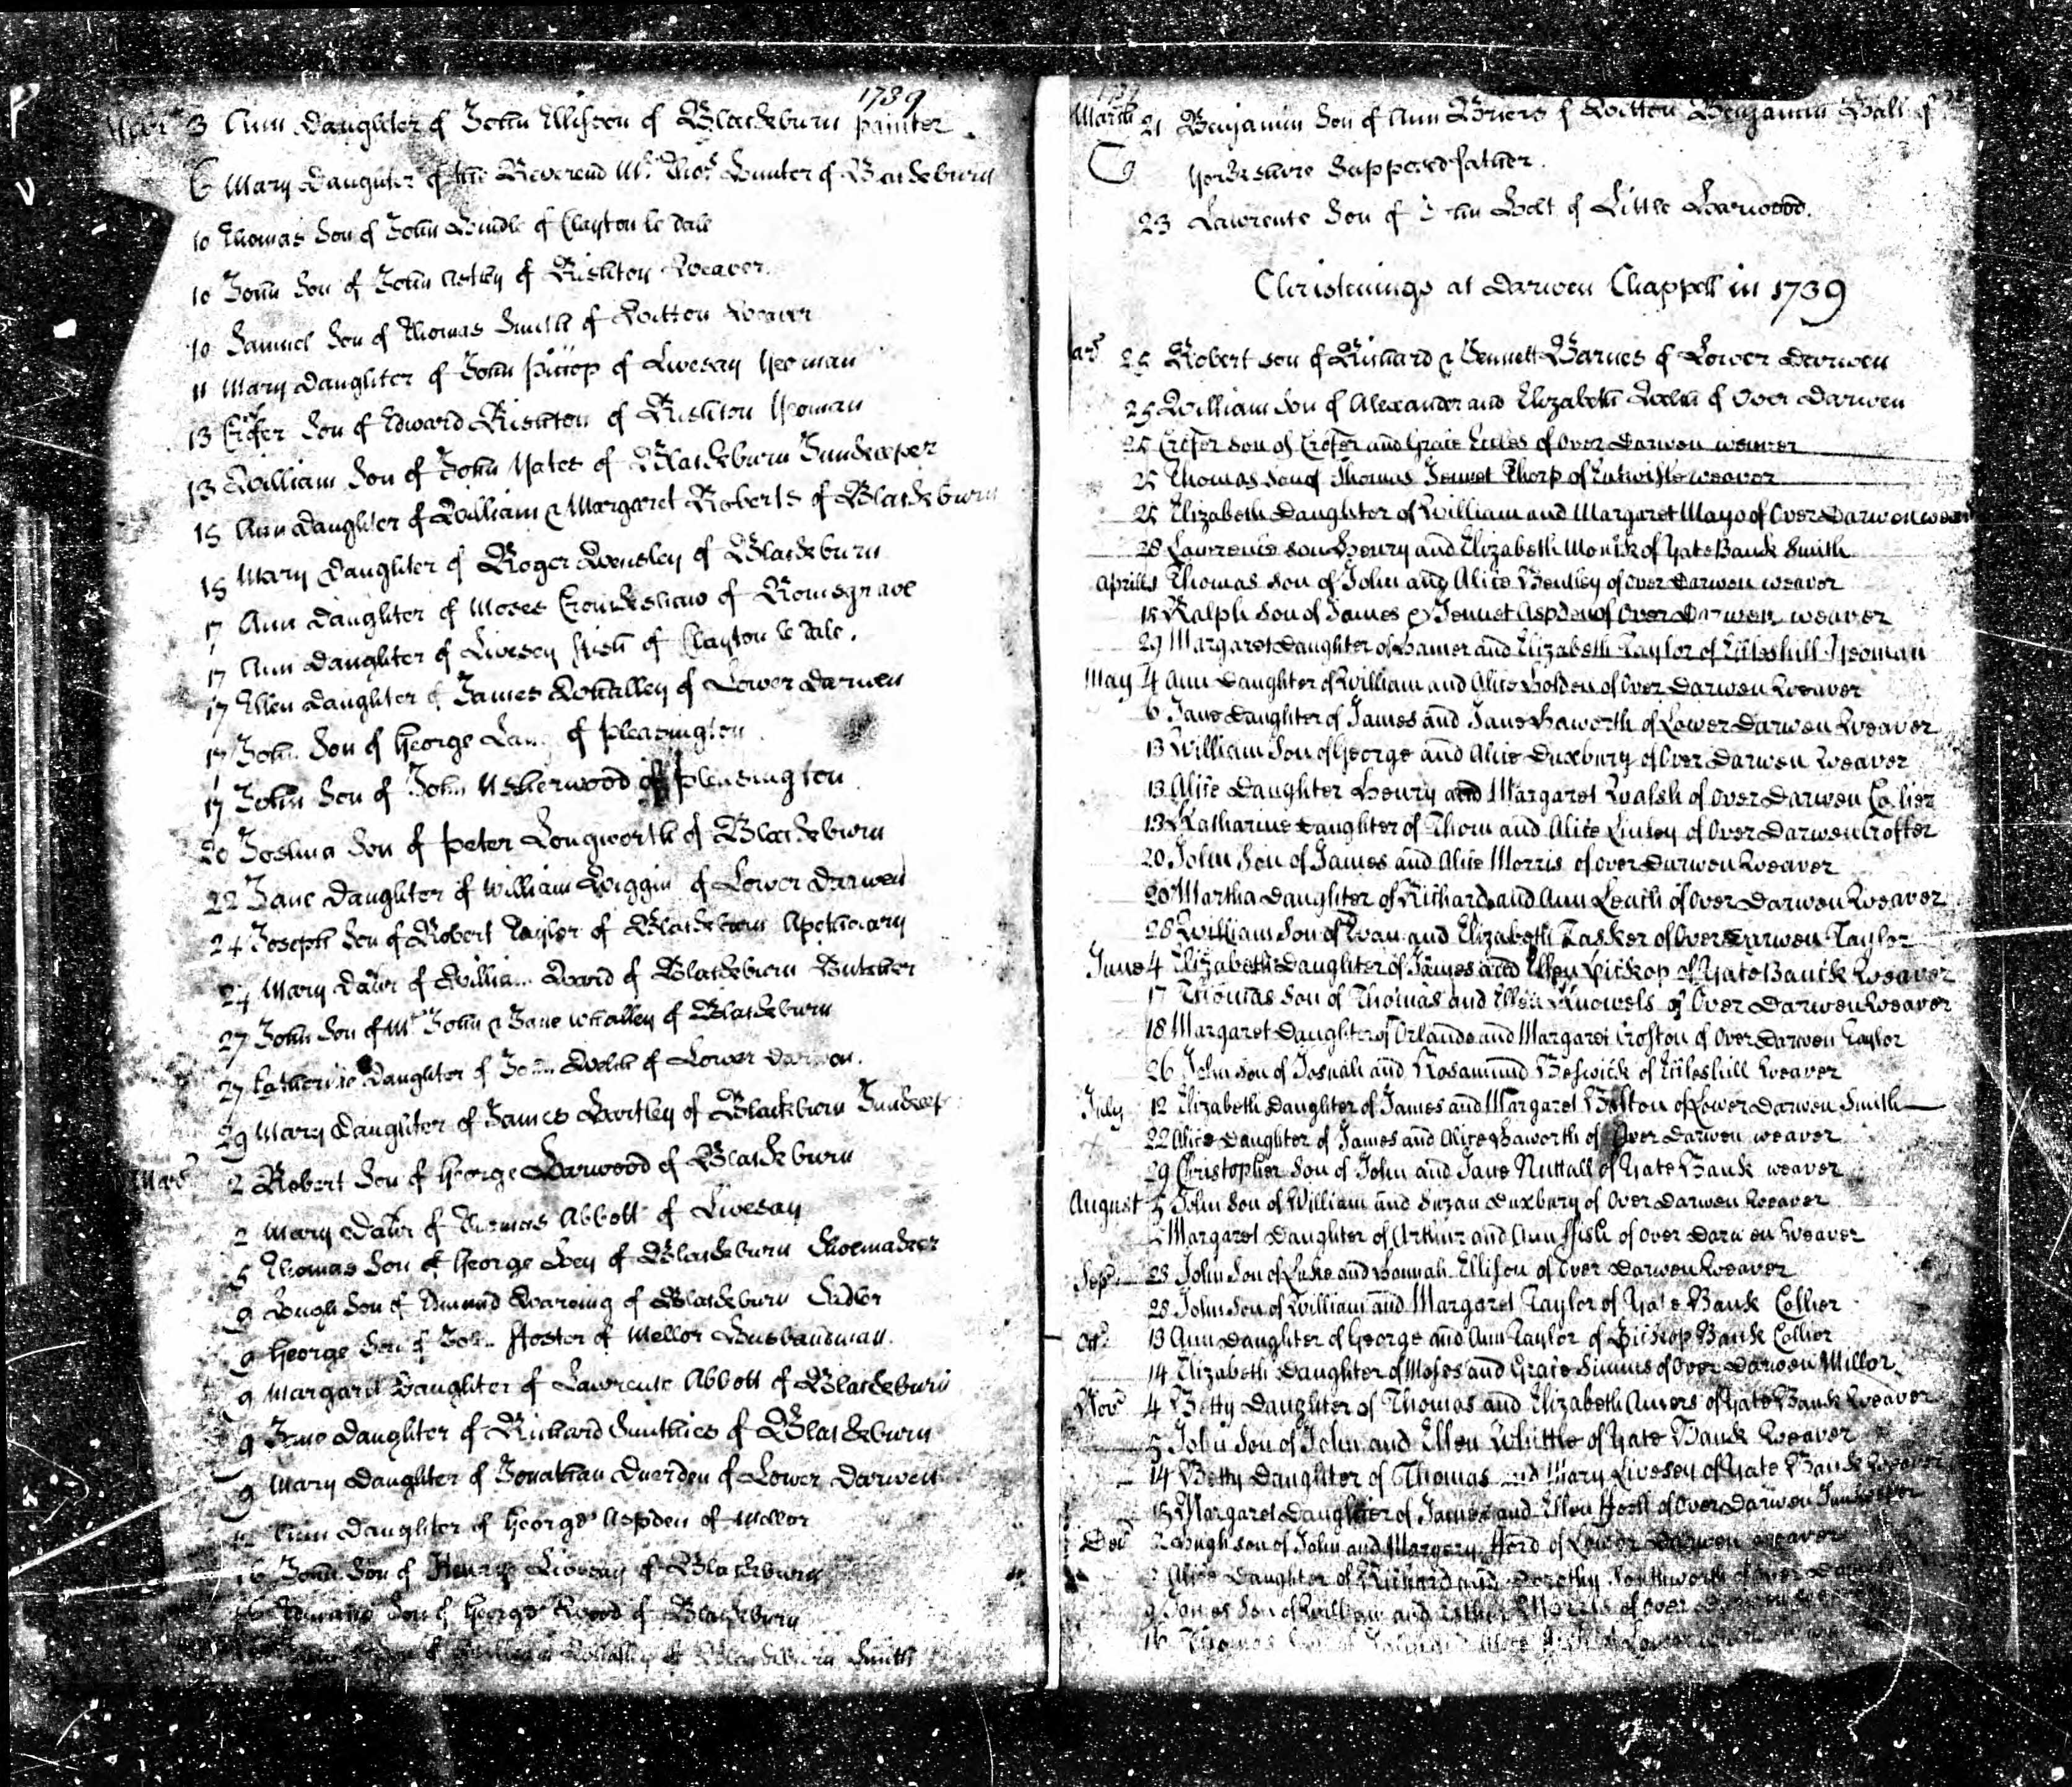 1739
3 Ann Daughter of John Ellison of Blackburn painter
6 Mary Daughter of the Reverend Mr. Thos. Hunter of Blackburn
10 Thomas Son of John Hindle of Clayton le dale
10 John Son of John Astley of Rishton Weaver
10 Samuel Son of Thomas Smith of Witton Weaver
11 Mary Daughter of John of Livesey Yeoman
13 Crofer Son of Edward Rishton of Rishton Yeoman
13 William Son of John Yates of Blackburn Innkeeper
15 Ann Daughter of William & Margaret Roberts of Blackburn
15 Mary Daughter of Roger Wensley of Blackburn
17 Ann Daughter of Moses Cronkshaw of Romsgrave
17 Ann Daughter of Livesey ffish of Clayton le dale.
17 Ellen Daughter of James Whalley of Lower Darwen
17 John Son of George of pleasington
17 John Son of John Usherwood of pleasington
20 Joshua Son of peter Longworth of Blackburn
22 Jane Daughter of William Wiggin of Lower Darwen
24 Joseph Son of Robert Taylor of Blackburn Apothicary
24 Mary Dau'r of Ward of Blackburn Butcher
27 John Son of Mr. John & Jane Whalley of Blackburn
27 Daughter of Welch of Lower Darwen.
29 Mary Daughter of James Hartley of Blackburn
2 Robert Son of George Harwood of Blackburn
2 Mary Dau'r of Thomas Abbott of Livesay
5 Thomas Son of George Hey of Blackburn Shoemaker
9 Hugh Son of Edmund Waring of Blackburn Sadler
9 George Son of ffoster of Mellor Husbandman.
9 Margaret Daughter of Lawrence Abbott of Blackburn
9 Jane Daughter of Richard Smithies of Blackburn
9 Mary Daughter of Jonathan Duerden of Lower Darwen
Ann Daughter of George Aspden of Mellor
16 John Son of Henry Livesay of Blackburn
Son of George Wood of Blackburn
of Blackburn Smith
March 21 Benjamin Son of Ann Briers of Witton Benjamin Hall of
Yorkshire Supposed father.
23 Lawrence Son of Holt of Little Harwood.
Christenings at Darwen Chappell in 1739
25 Robert son of Richard & Jennett Barnes of Lower Darwen
25 William Son of Alexander and Elizabeth Welch of Over Darwen
25 Crofer Son of Crofer and Grace Eccles of Over Darwen weaver
25 Thomas Son of Thomas Jennet Thorp of Entwisle weavor
25 Elizabeth Daughter of William and Margaret Mayo of Over Darwen
28 Lawrence son Henry and Elizabeth Monk of Yate Bank Smith
Aprill Thomas Son of John and Alice Bentley of Over Darwen weavor
15 Ralph Son of James & Jennet Aspden of Over Darwen weaver
29 Margaret Daughter of Hamer and Elizabeth Taylor of Eccleshill Yeoman
May 4 Ann Daughter of William and Alice Holden of Over Darwen Weaver
6 Jane Daughter of James and Jane Haworth of Lower Darwen Weaver
13 William Son of George and Alice Duxbury of Over Darwen Weaver
13 Alice Daughter Henry and Margaret Walsh of Over Darwen Collier
13 Katharine Daughter of Thom and Alice Linley of Over Darwen Crofter
20 John Son of James and Alice Morris of Over Darwen Weaver
20 Martha Daughter of Richard and Ann Leach of Over Darwen Weaver
28 William Son of Evan and Elizabeth Tasker of Over Darwen Taylor
June 4 Elizabeth Daughter of James and Ellen Pickop of Yate Banck Weaver
17 Thomas Son of Thomas and Ellen Knowels of Over Darwen Weaver
18 Margaret Daughter of Orlando and Margaret Croston of Over Darwen Taylor
26 John Son of Josuah and Rosamund Beswick of Eccleshill Weaver
July 12 Elizabeth Daughter of James and Margaret Bolton of Lower Darwen Smith
22 Alice Daughter of James and Alice Haworth of Over Darwen weaver
29 Christopher Son of John and Jane Nuttall of Yate Bank weaver
August 5 John Son of William and Suzan Duxbury of Over Darwen Weaver
Margaret Daughter of Arthur and Ann ffish of Over Darwen Weaver
Sep. 23 John Son of Luke and Hannah Ellison of Over Darwen Weaver
28 John Son of William and Margaret Taylor of Yate Bank Collier
13 Ann Daughter of George and Ann Taylor of Pickop Bank Collier
14 Elizabeth Daughter of Moses and Grace Simms of Over Darwen Millor
Nov 4 Betty Daughter of Thomas and Elizabeth of Yate Bank Weaver
5 John Son of John and Ellen Whittle of Yate Bank Weaver
14 Betty Daughter of Thomas and Mary Livesey of Yate Bank Weaver
15 Margaret Daughter of James and Ellen of Over Darwen Innkeeper
Dec 2 Hugh son of John and Margery of Lower Darwen weaver
Alice Daughter of Richard and Dorothy Southworth of Over
9 James Son of William and Esther Morris of Over
16 Thomas